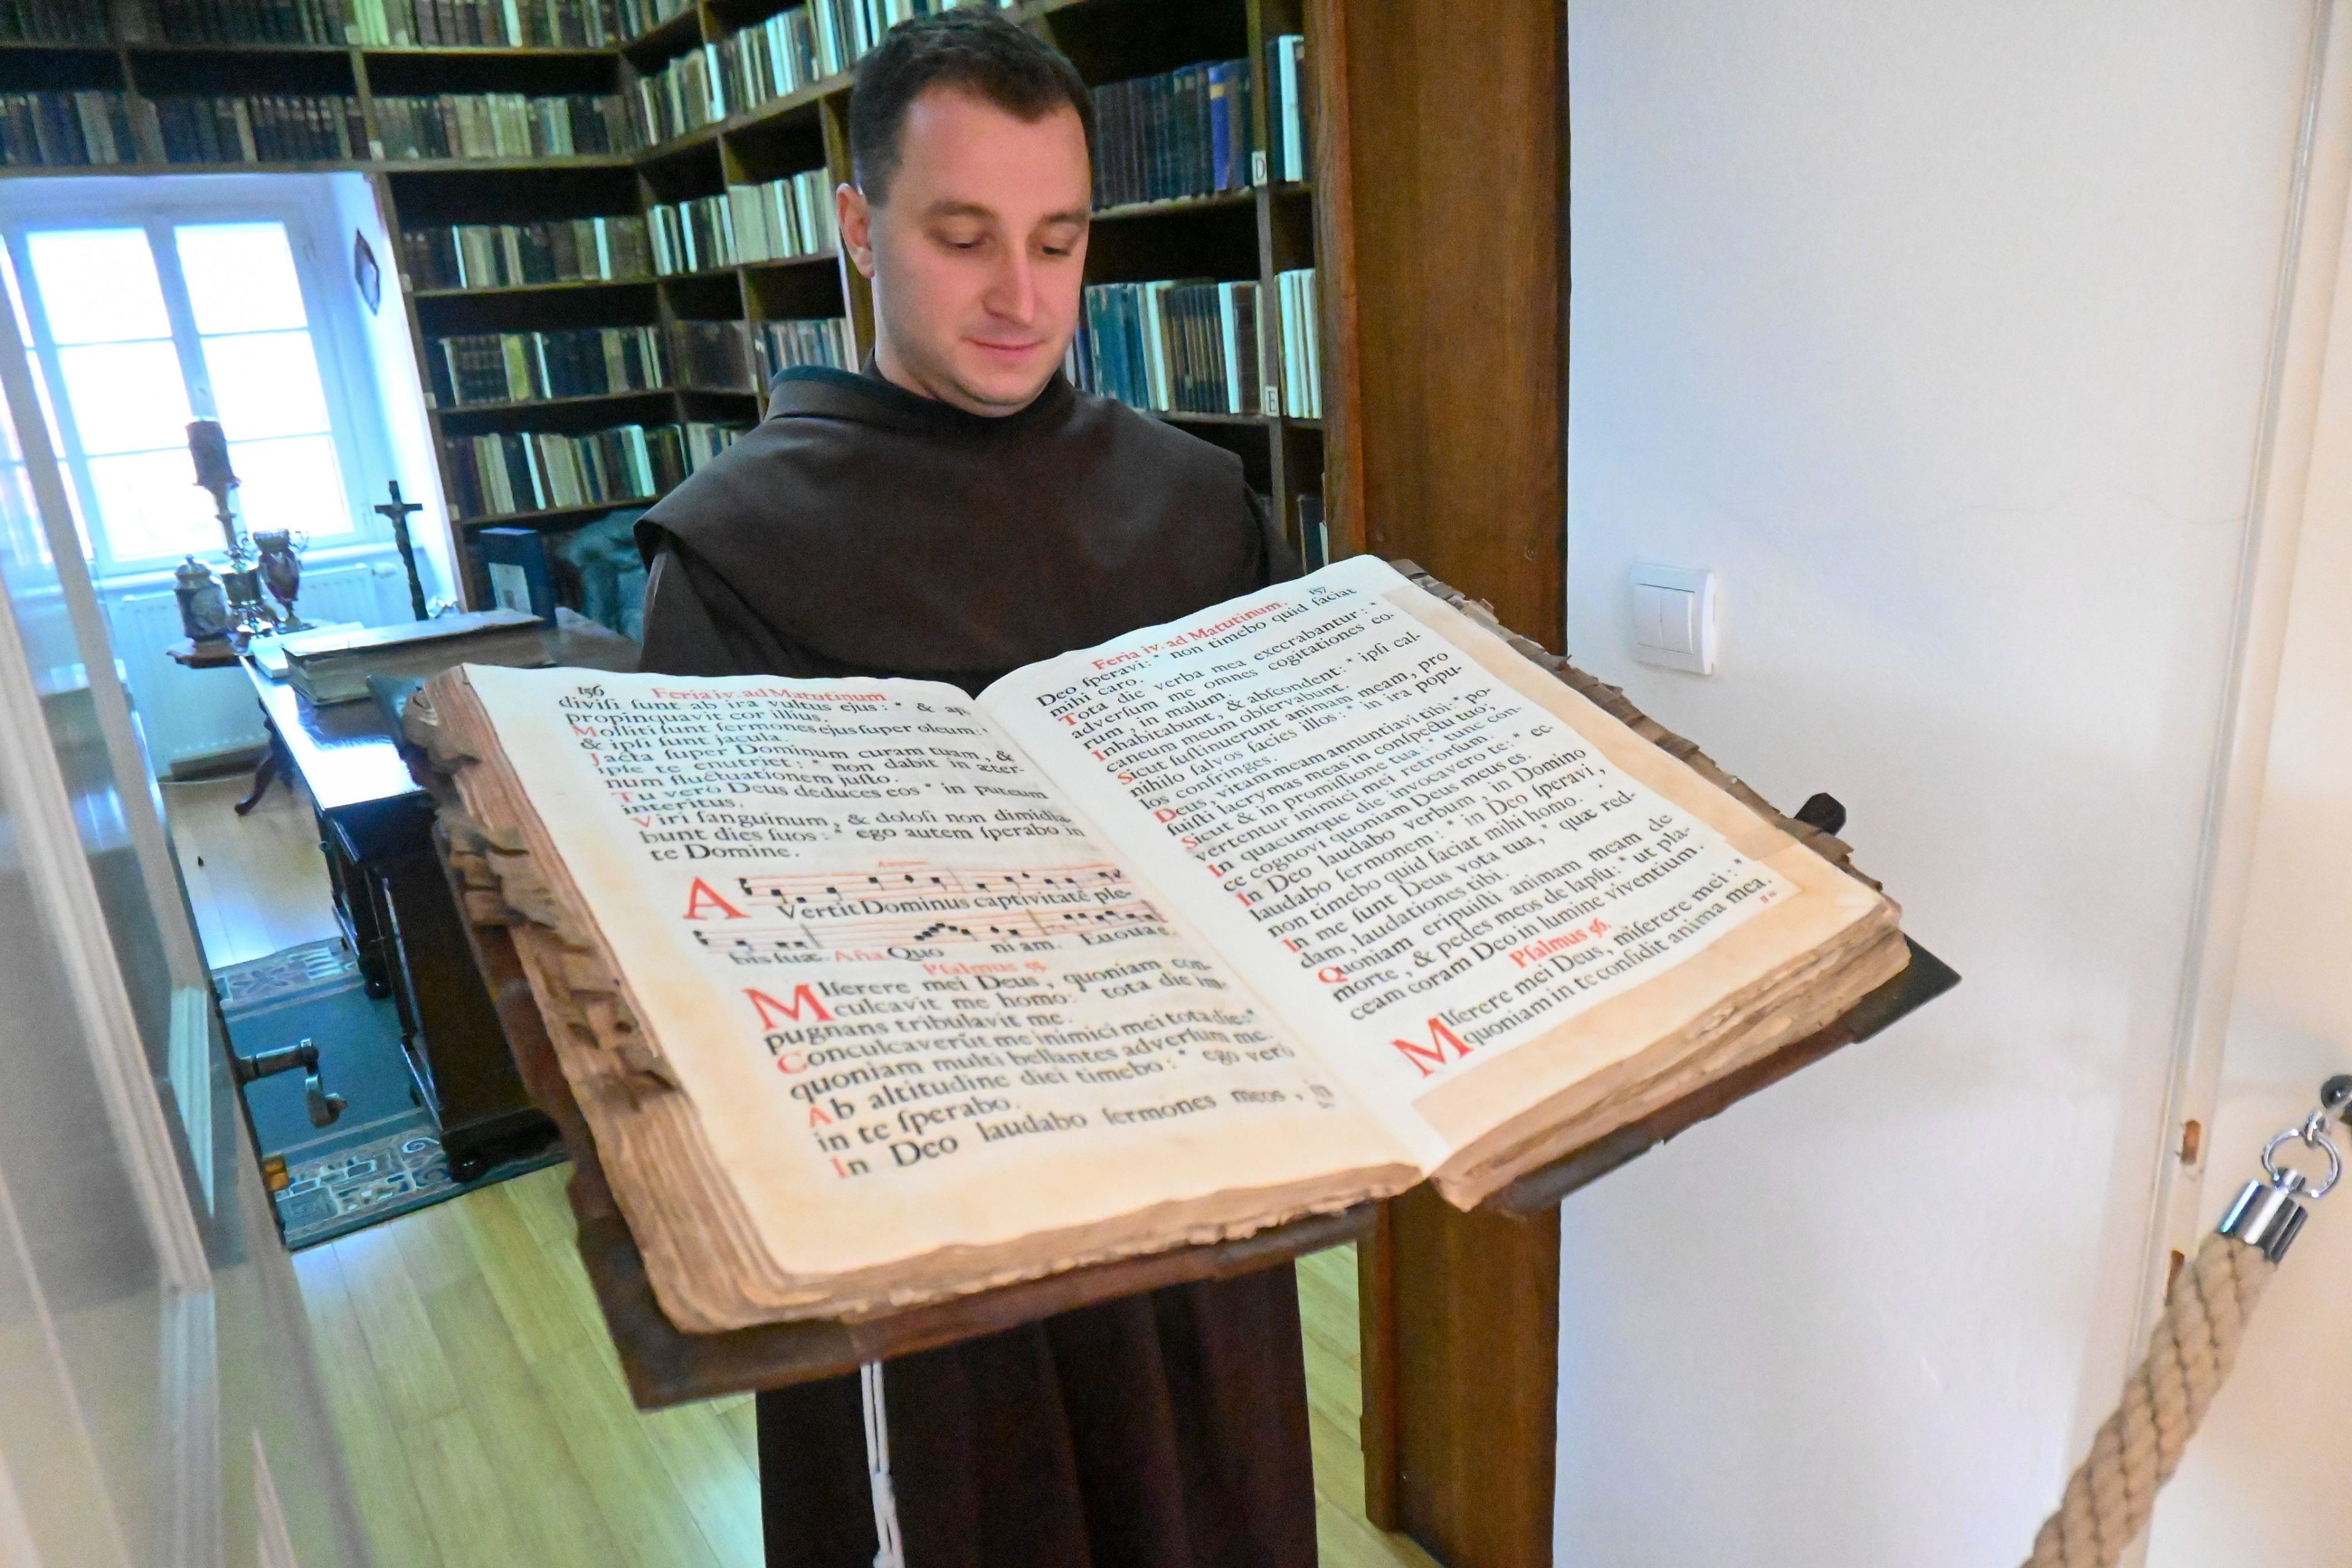 156
Feria iv. ad Matutinum.
divisi sunt ab ira vultus ejus : * & ap-
propinquavit cor illius.
Molliti sunt sermones ejus super oleum : *
& ipsi sunt jacula.
Jacta super Dominum curam tuam , &
ipse te enutriet : * non dabit in æter-
num fluctuationem justo.
Tu verò Deus deduces eos * in puteum
interitus.
Viri sanguinum , & dolosi non dimidia-
bunt dies suos : * ego autem sperabo in
te Domine.
A
Vertit Dominus captivitatē ple-
bis suæ.
Quo ni am. Euouae.
Psalmus 55.
MIserere mei Deus , quoniam con-
culcavit me homo : * tota die im-
pugnans tribulavit me.
Conculcaverūt me inimici mei tota die : *
quoniam multi bellantes adversum me.
Ab altitudine diei timebo : * ego verò
in te sperabo.
In Deo laudabo sermones meos , in
157
Feria iv. ad Matutinum.
Deo speravi : * non timebo quid faciat
mihi caro.
Tota die verba mea execrabantur : *
adversum me omnes cogitationes eo-
rum , in malum.
Inhabitabunt , & abscondent : * ipsi cal-
caneum meum observabunt.
Sicut sustinuerunt animam meam , pro
nihilo salvos facies illos : * in ira popu-
los confringes.
Deus , vitam meam annuntiavi tibi : * po-
suisti lacrymas meas in conspectu tuo ;
Sicut & in promissione tua : * tunc con-
vertentur inimici mei retrorsum.
In quacumque die invocavero te : * ec-
ce cognovi quoniam Deus meus es.
In Deo laudabo verbum , in Domino
laudabo sermonem : * in Deo speravi ,
non timebo quid faciat mihi homo.
In me sunt Deus vota tua , * quæ red-
dam , laudationes tibi.
Quoniam eripuisti animam meam de
morte , & pedes meos de lapsu : * ut pla-
ceam coram Deo in lumine viventium.
Psalmus 56.
MIserere mei Deus, miserere mei : *
quoniam in te confidit anima mea.
D
E